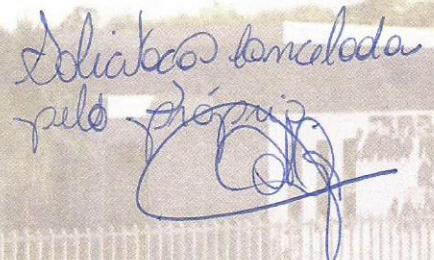 Solicitacao Cancelada
pelo próprio